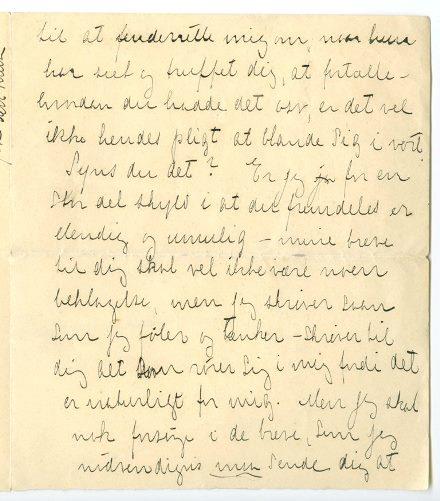 til at underrette mig om, naar hun
har set og truffet dig, at fortælle
hvordan du havde det osv, er det vel
ikke hendes pligt at blande sig i vort.
Syns du det? Er jeg for en
stor del skyld i at du fremdeles er
elendig og umulig – mine breve
til dig skal vel ikke være noen
beklagelse, men jeg skriver saan
som jeg føler og tænker – skriver til
dig alt som rører sig i mig fordi det
er naturligt for mig. Men jeg skal
nok forsøge i de breve, som jeg
nødvendigvis maa sende dig at